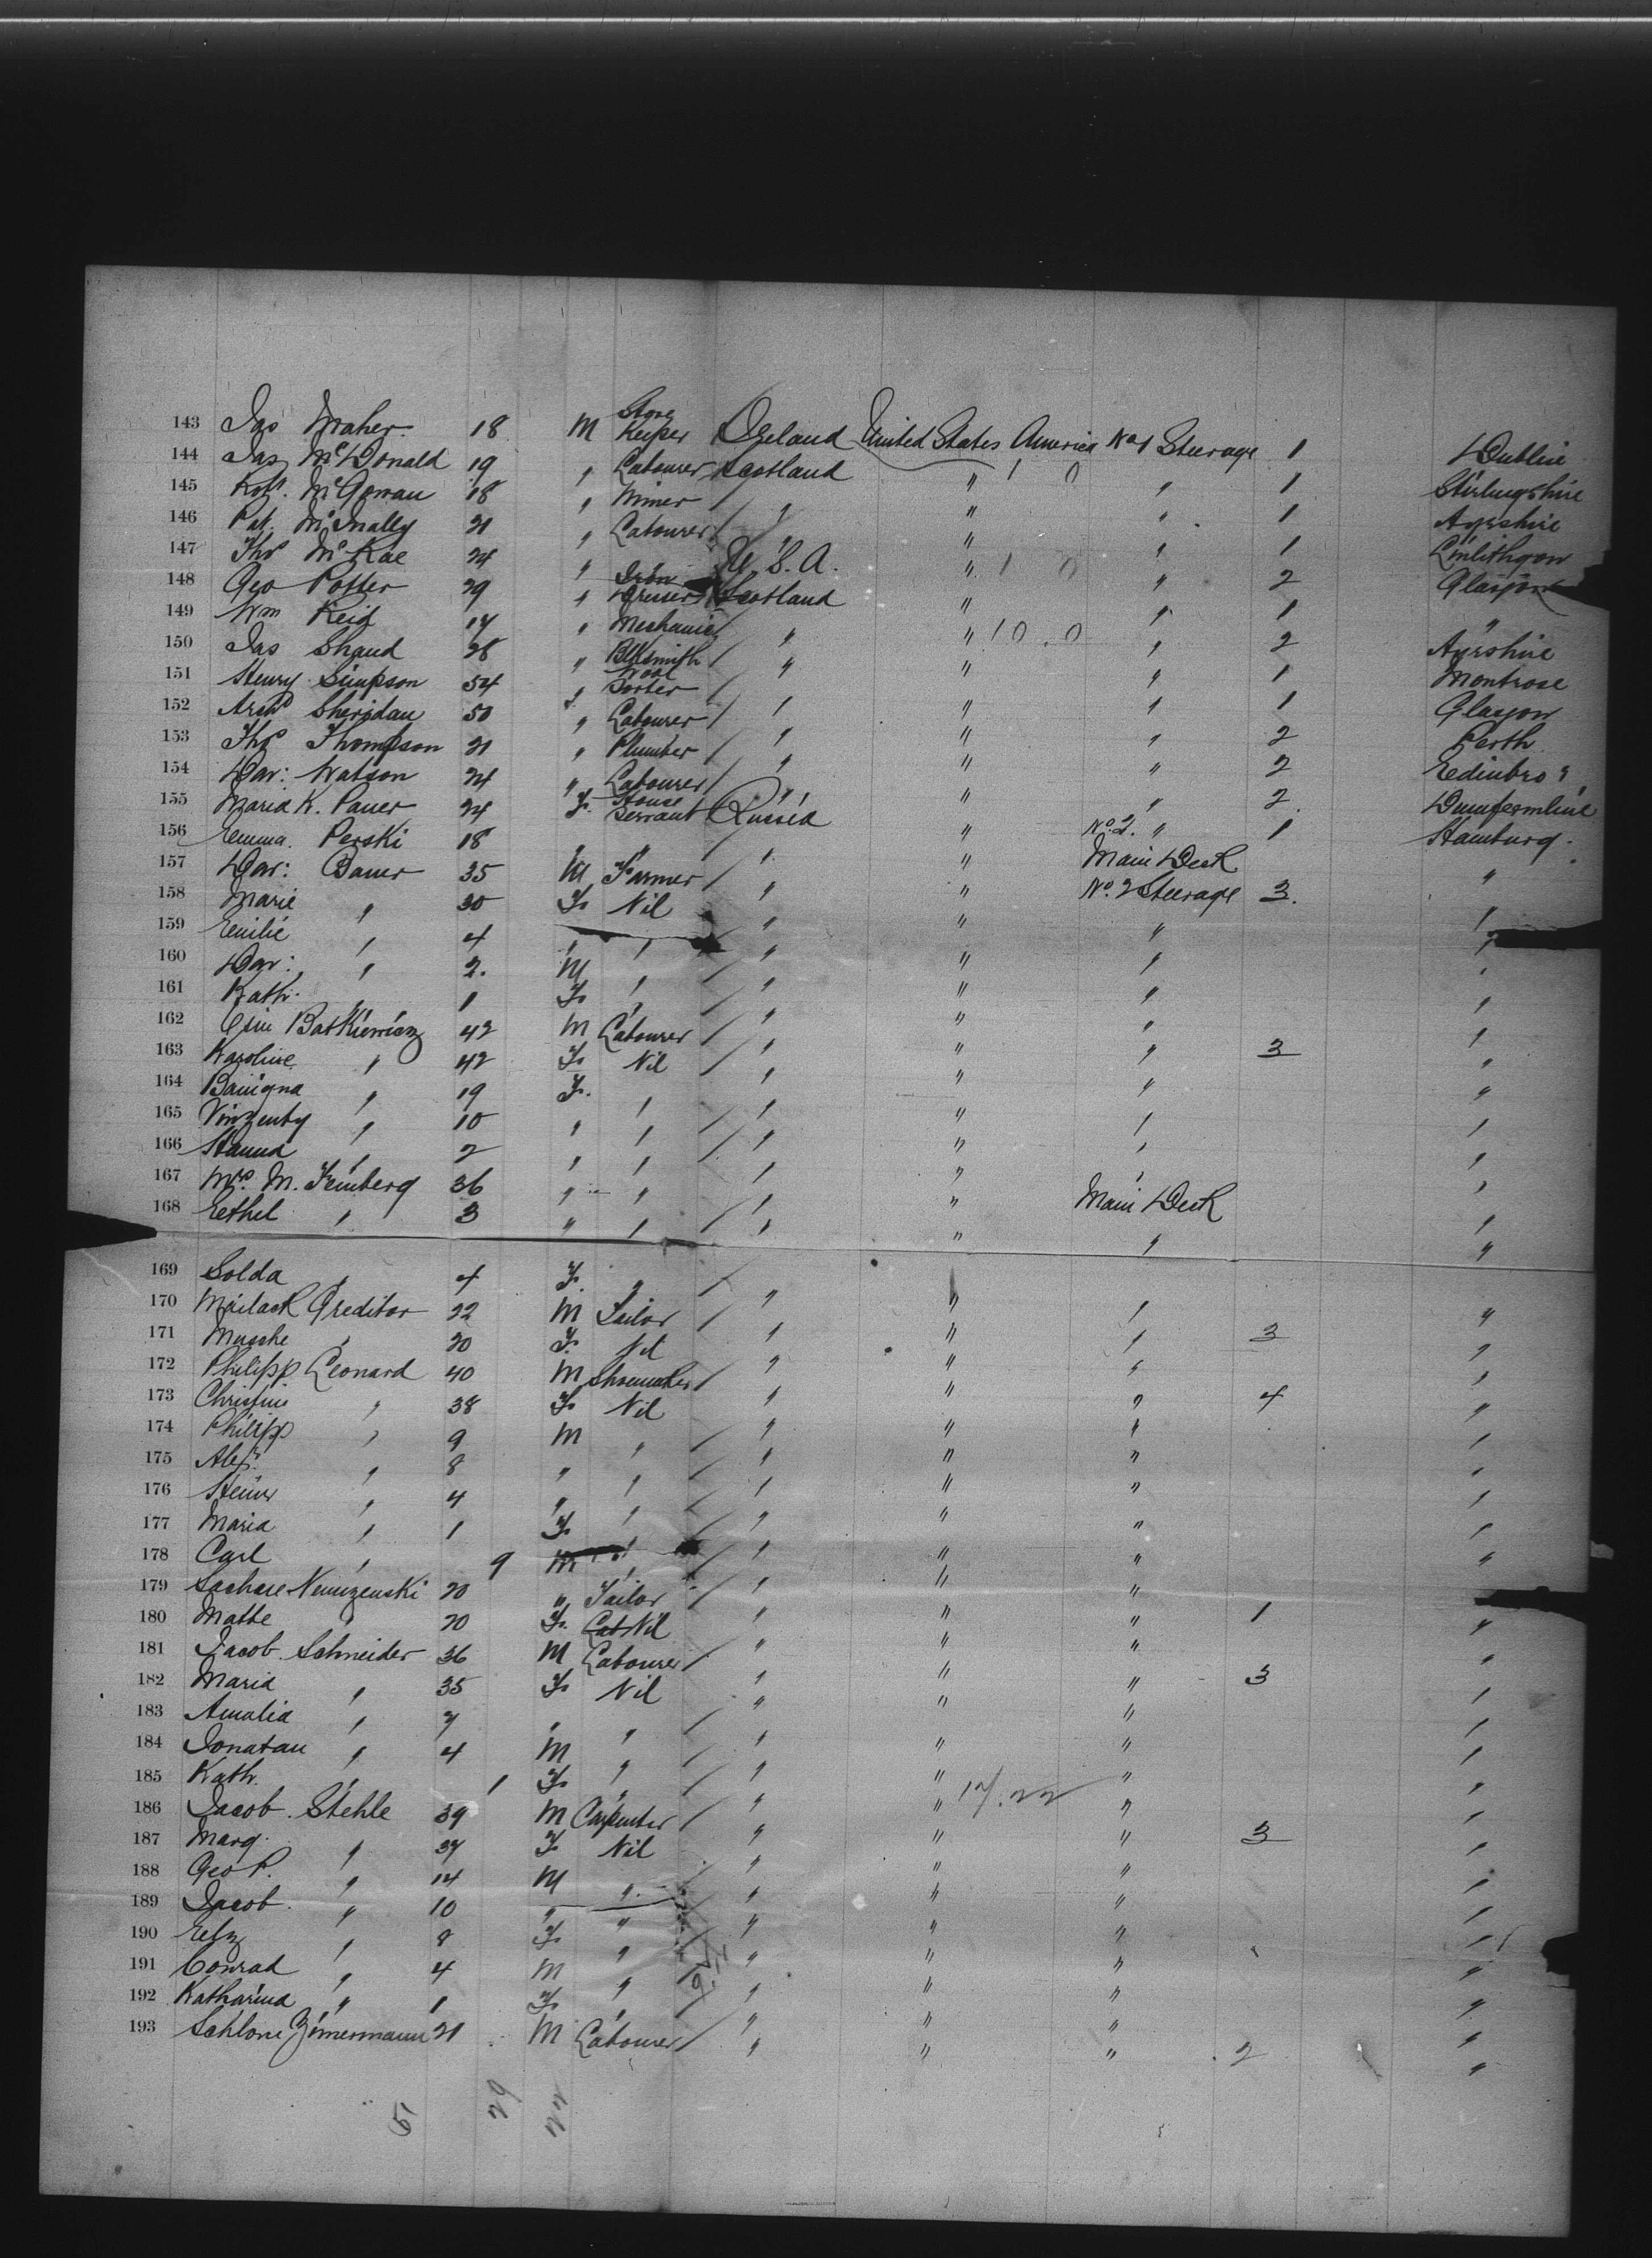 143 Jas Maher 18 M Store Keeper Ireland United States America No 1 Steerage 1 Dublin
144 Jas McDonald 19 " Labourer Scotland " " 1 Stirlingshire
145 Robt. McGowan 18 " Miner " " " 1 Ayrshire
146 Pat. McInally 21 " Labourer " " " 1 Linlithgow
147 Thos McRae 24 " " U.S.A. " " 2 Glasgow
148 Geo Potter 29 " Iron Dresser Scotland " " 1 "
149 Wm Reid 17 " Mechanic " " " 2 Ayrshire
150 Jas Shand 28 " Blksmith " " " 1 Montrose
151 Henry Simpson 54 " Wool Sorter " " " 1 Glasgow
152 Archd Sheridan 50 " Labourer " " " 2 Perth
153 Thos Thompson 21 " Plumber " " " 2 Edinbro'
154 Dav: Watson 24 " Labourer " " " 2 Dunfermline
155 Maria K. Pauer 24 F. House Servant Russia " No. 2. " 1 Hamburg
156 Emma Perski 18 " " " " Main Deck "
157 Dav: Bauer 35 M Farmer " " No. 2 Steerage 3 "
158 Marie " 30 F. Nil " " " "
159 Emilie " 4 " " " " " "
160 Dav: " 2. M " " " " "
161 Kath. " 1 F. " " " " "
162 Batkiewicz 42 M Labourer " " " 3 "
163 Karoline " 42 F. Nil " " " "
164 " 19 F. " " " " "
165 Vinzenty " 10 " " " " " "
166 Hanna " 2 " " " " " "
167 Mrs. M. Feinberg 36 " " " " Main Deck "
168 Eethel " 3 " " " " " "
169 Solda " 4 F. " " " " "
170 Creditor 22 M Tailor " " " 3 "
171 Musche " 20 F. Nil " " " "
172 Philipp Leonard 40 M Shoemaker " " " 4 "
173 Christine " 38 F. Nil " " " "
174 Philipp " 9 M " " " " "
175 Alexr. " 8 " " " " " "
176 " 4 " " " " " "
177 Maria " 1 F. " " " " "
178 Carl " 9 M " " " " "
179 20 " Tailor " " " 1 "
180 " 20 F. Nil " " " "
181 Jacob Schneider 36 M Labourer " " " 3 "
182 Maria " 35 F. Nil " " " "
183 Amalia " 7 " " " " " "
184 Jonatan " 4 M " " " " "
185 Kath. " 1 F. " " " " "
186 Jacob Stehle 39 M Carpenter " " " 3 "
187 Marg. " 37 F. Nil " " " "
188 Geo P. " 14 M " " " " "
189 Jacob " 10 " " " " " "
190 Eliz " 8 F. " " " " "
191 Conrad " 4 M " " " " "
192 Katharina " 1 F. " " " " "
193 Schlome Zimermann 21 M Labourer " " " 2 "
51 29 22